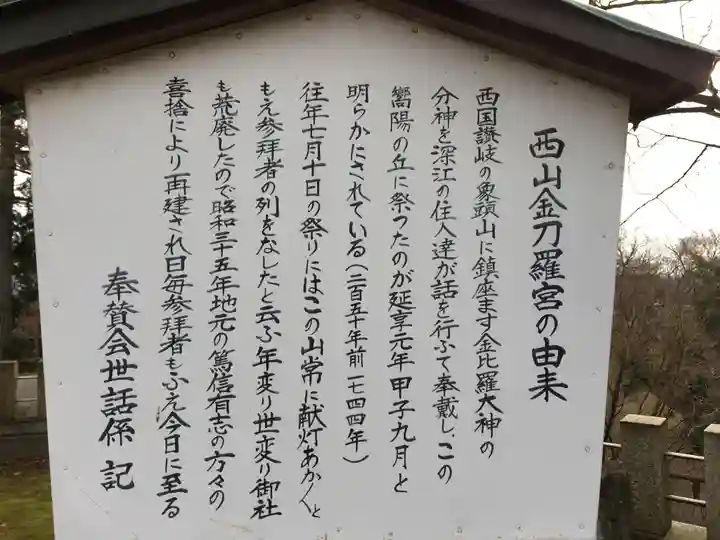 西山金刀羅宮の由来
西国讃岐の象頭山に鎮座ます金比羅大神の
分神を深江の住人達が話を行ふて奉戴し、この
嚮陽の丘に祭つたのが延享元年甲子九月と
明らかにされている(二百五十年前一七四四年)
往年七月十日の祭りにはこの山常に献灯あかくと
もえ参拝者の列をなしたと云ふ年変り世変り御社
も荒廃したので昭和三十五年地元の篤信有志の方々の
喜捨により再建され日毎参拝者もふえ今日に至る
奉賛会世話係 記